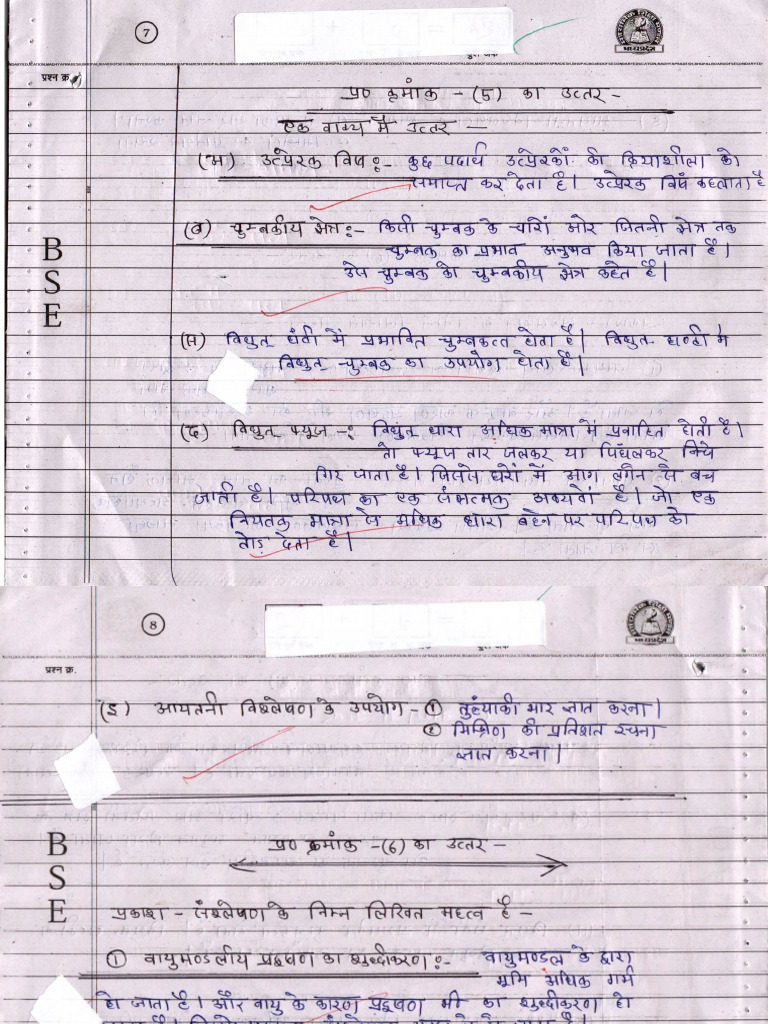 7
प्रश्न क्र.
प्र० क्रमांक - (5) का उत्तर -
एक वाक्य में उत्तर —
(अ) उत्प्रेरक विष :- कुछ पदार्थ उत्प्रेरकों की क्रियाशीला को
समाप्त कर देता है। उत्प्रेरक विष कहलाता है
(ब) चुम्बकीय क्षेत्र :- किसी चुम्बक के चारों ओर जितनी क्षेत्र तक
चुम्बक का प्रभाव अनुभव किया जाता है।
उसे चुम्बक को चुम्बकीय क्षेत्र कहते है।
(स) विधुत घंटी में प्रभावित चुम्बकत्त होता है। विधुत घण्टी में
विधुत चुम्बक का उपयोग होता है।
(द) विधुत फ्यूज -: विधुत धारा अधिक मात्रा में प्रवाहित होती है।
तो फ्यूज तार जलकर या पिघलकर निचे
गिर जाता है। जिससे घरों में आग लगने से बच
जाती है। परिपथ का एक अवयवों है। जो एक
नियतक मात्रा से अधिक धारा बहने पर परिपथ को
तोड़ देता है।
B
S
E
8
प्रश्न क्र.
(इ) आयतनी विश्लेषण के उपयोग - ① तुल्यांकी भार ज्ञात करना।
② मिश्रण की प्रतिशत रचना
ज्ञात करना।
प्र० क्रमांक -(6) का उत्तर -
B
S
E
प्रकाश - संश्लेषण के निम्न लिखित महत्व है -
① वायुमण्डलीय प्रदूषण का शुद्धीकरण :- वायुमण्डल के द्वारा
भूमि अधिक गर्म
हो जाता है। और वायु के कारण प्रदूषण भी का शुद्धीकरण हो